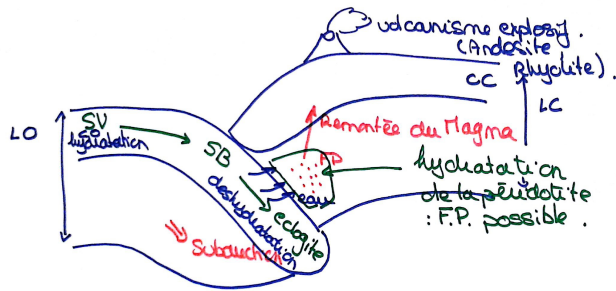 volcanisme explosif.
(Andésite
Rhyolite).
CC
LC
LO
SV
SO
hydratation
SB
Remontée du Magma
FP
eau
déshydratation
eclogite
Subduction
hydratation
de la péridotite
: F.P. possible.